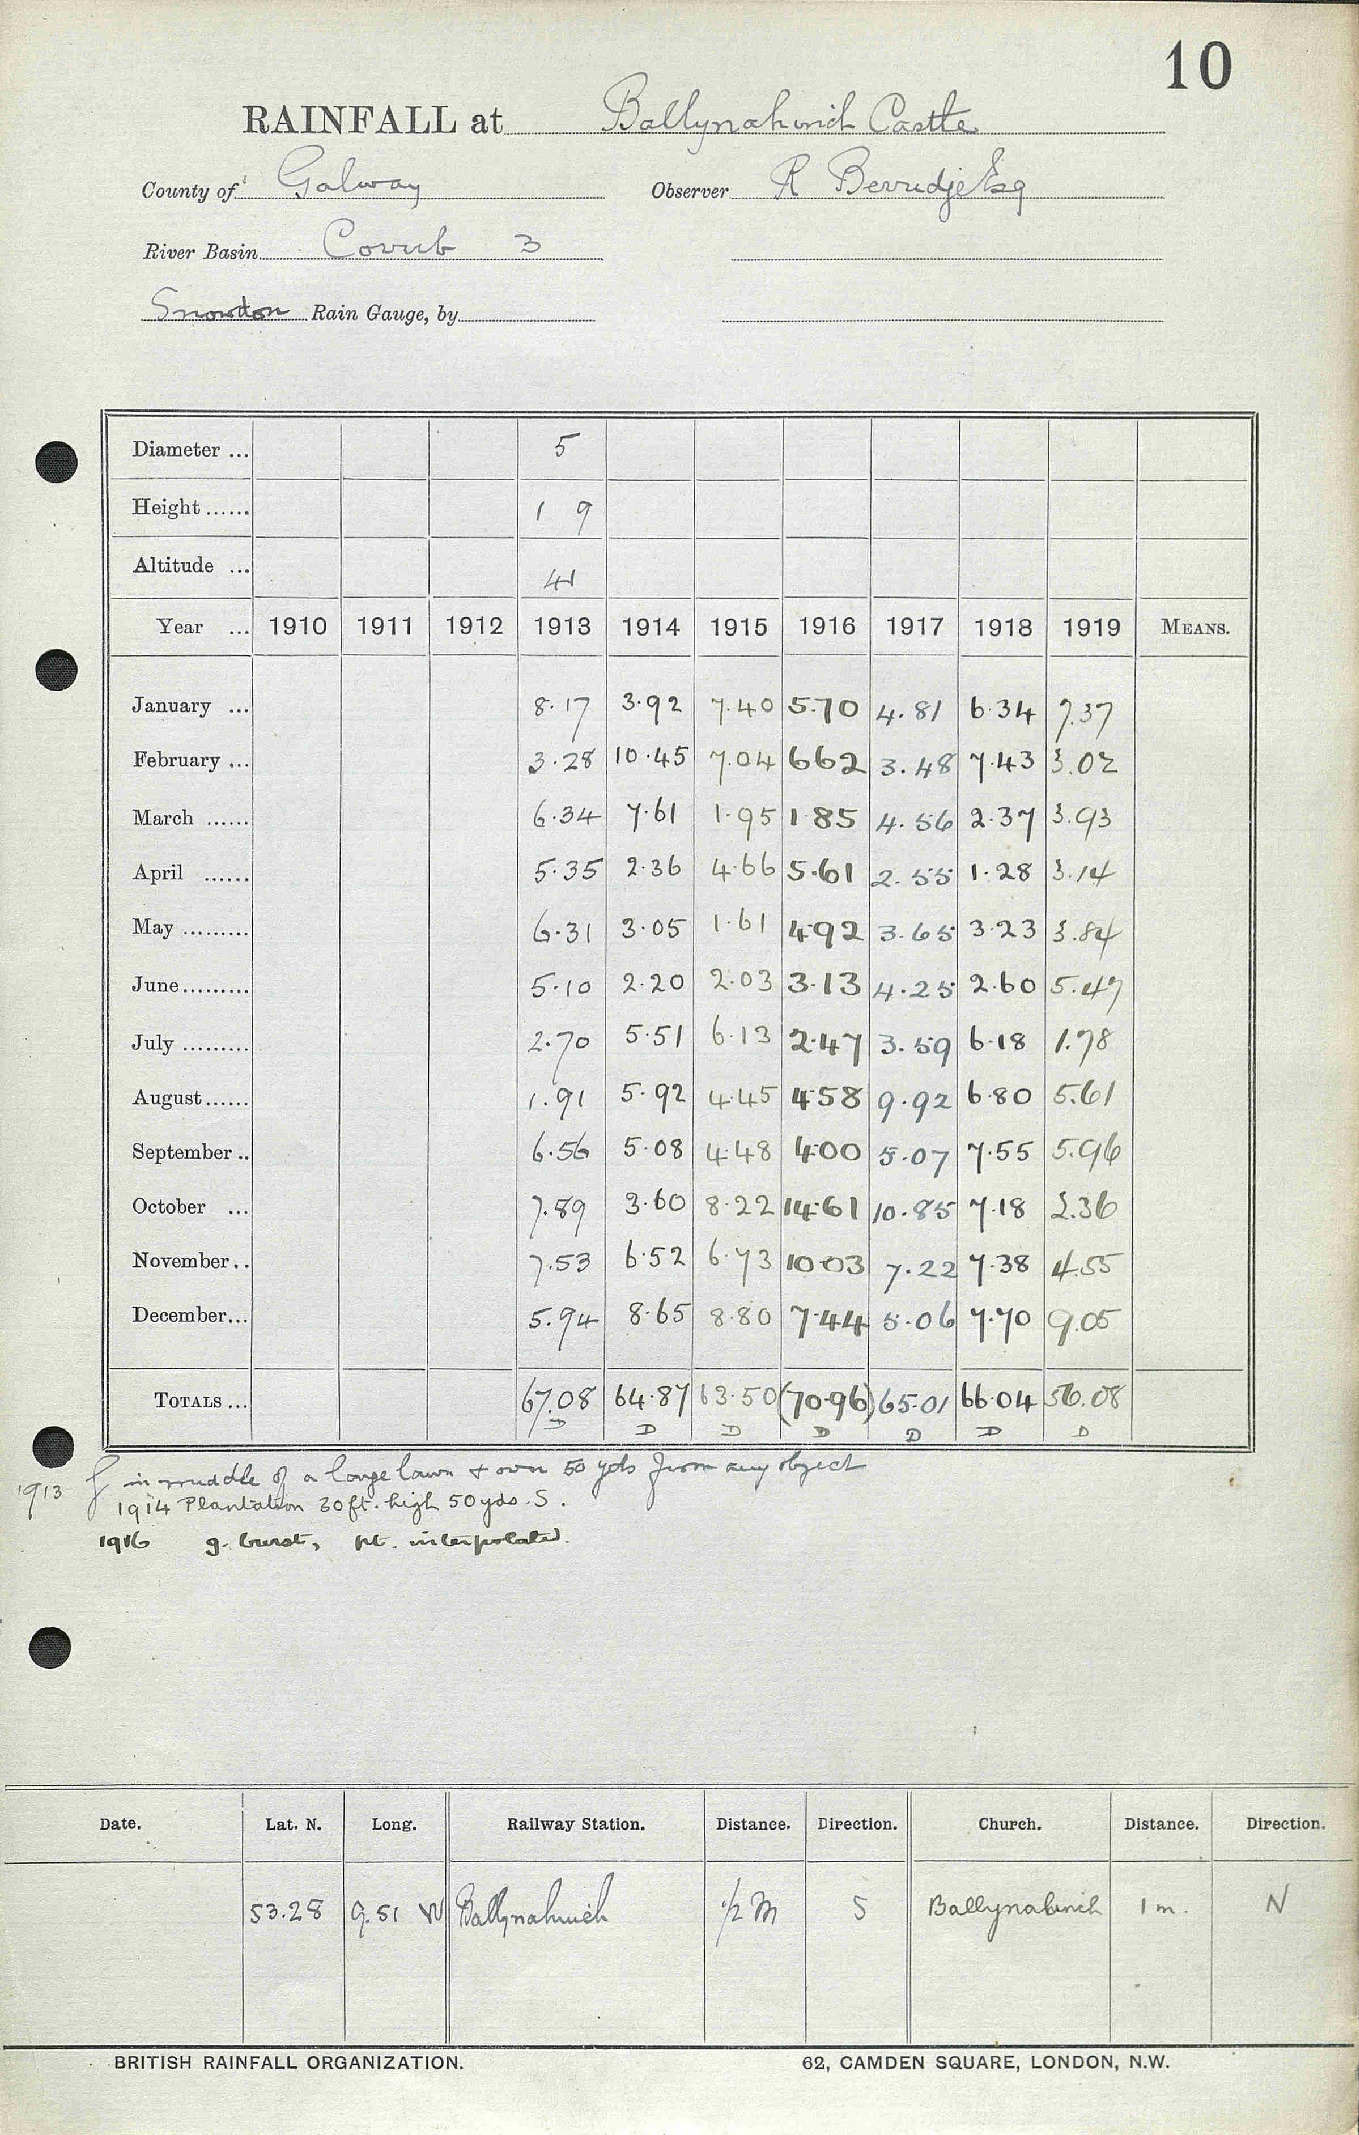 10
RAINFALL at Ballynahinch Castle
County of Galway Observer R Berridge Esq
River Basin Corrib 3
Snowdon Rain Gauge, by
Diameter ... 5
Height ...... 1 9
Altitude ... 41
Year ... 1910 1911 1912 1913 1914 1915 1916 1917 1918 1919 MEANS.
January ... 8.17 3.92 7.40 5.70 4.81 6.34 7.37
February ... 3.28 10.45 7.04 6.62 3.48 7.43 3.02
March ...... 6.34 7.61 1.95 1.85 4.56 2.37 3.93
April ...... 5.35 2.36 4.66 5.61 2.55 1.28 3.14
May ......... 6.31 3.05 1.61 4.92 3.65 3.23 3.84
June ......... 5.10 2.20 2.03 3.13 4.25 2.60 5.47
July ......... 2.70 5.51 6.13 2.47 3.59 6.18 1.78
August ...... 1.91 5.92 4.45 4.58 9.92 6.80 5.61
September .. 6.56 5.08 4.48 4.00 5.07 7.55 5.96
October ... 7.89 3.60 8.22 14.61 10.85 7.18 2.36
November .. 7.53 6.52 6.73 10.03 7.22 7.38 4.55
December ... 5.94 8.65 8.80 7.44 5.06 7.70 9.05
TOTALS ... 67.08 64.87 63.50 (70.96) 65.01 66.04 56.08
D D D D D D D
1913 in middle of a large lawn & over 50 yds from any object
1914 Plantation 30ft. high 50yds. S.
1916 g. burst, pt. interpolated.
Date. Lat. N. Long. Railway Station. Distance. Direction. Church. Distance. Direction.
53.28 9.51 W Ballynahinch 1/2 m S Ballynahinch 1 m. N
BRITISH RAINFALL ORGANIZATION. 62, CAMDEN SQUARE, LONDON, N.W.